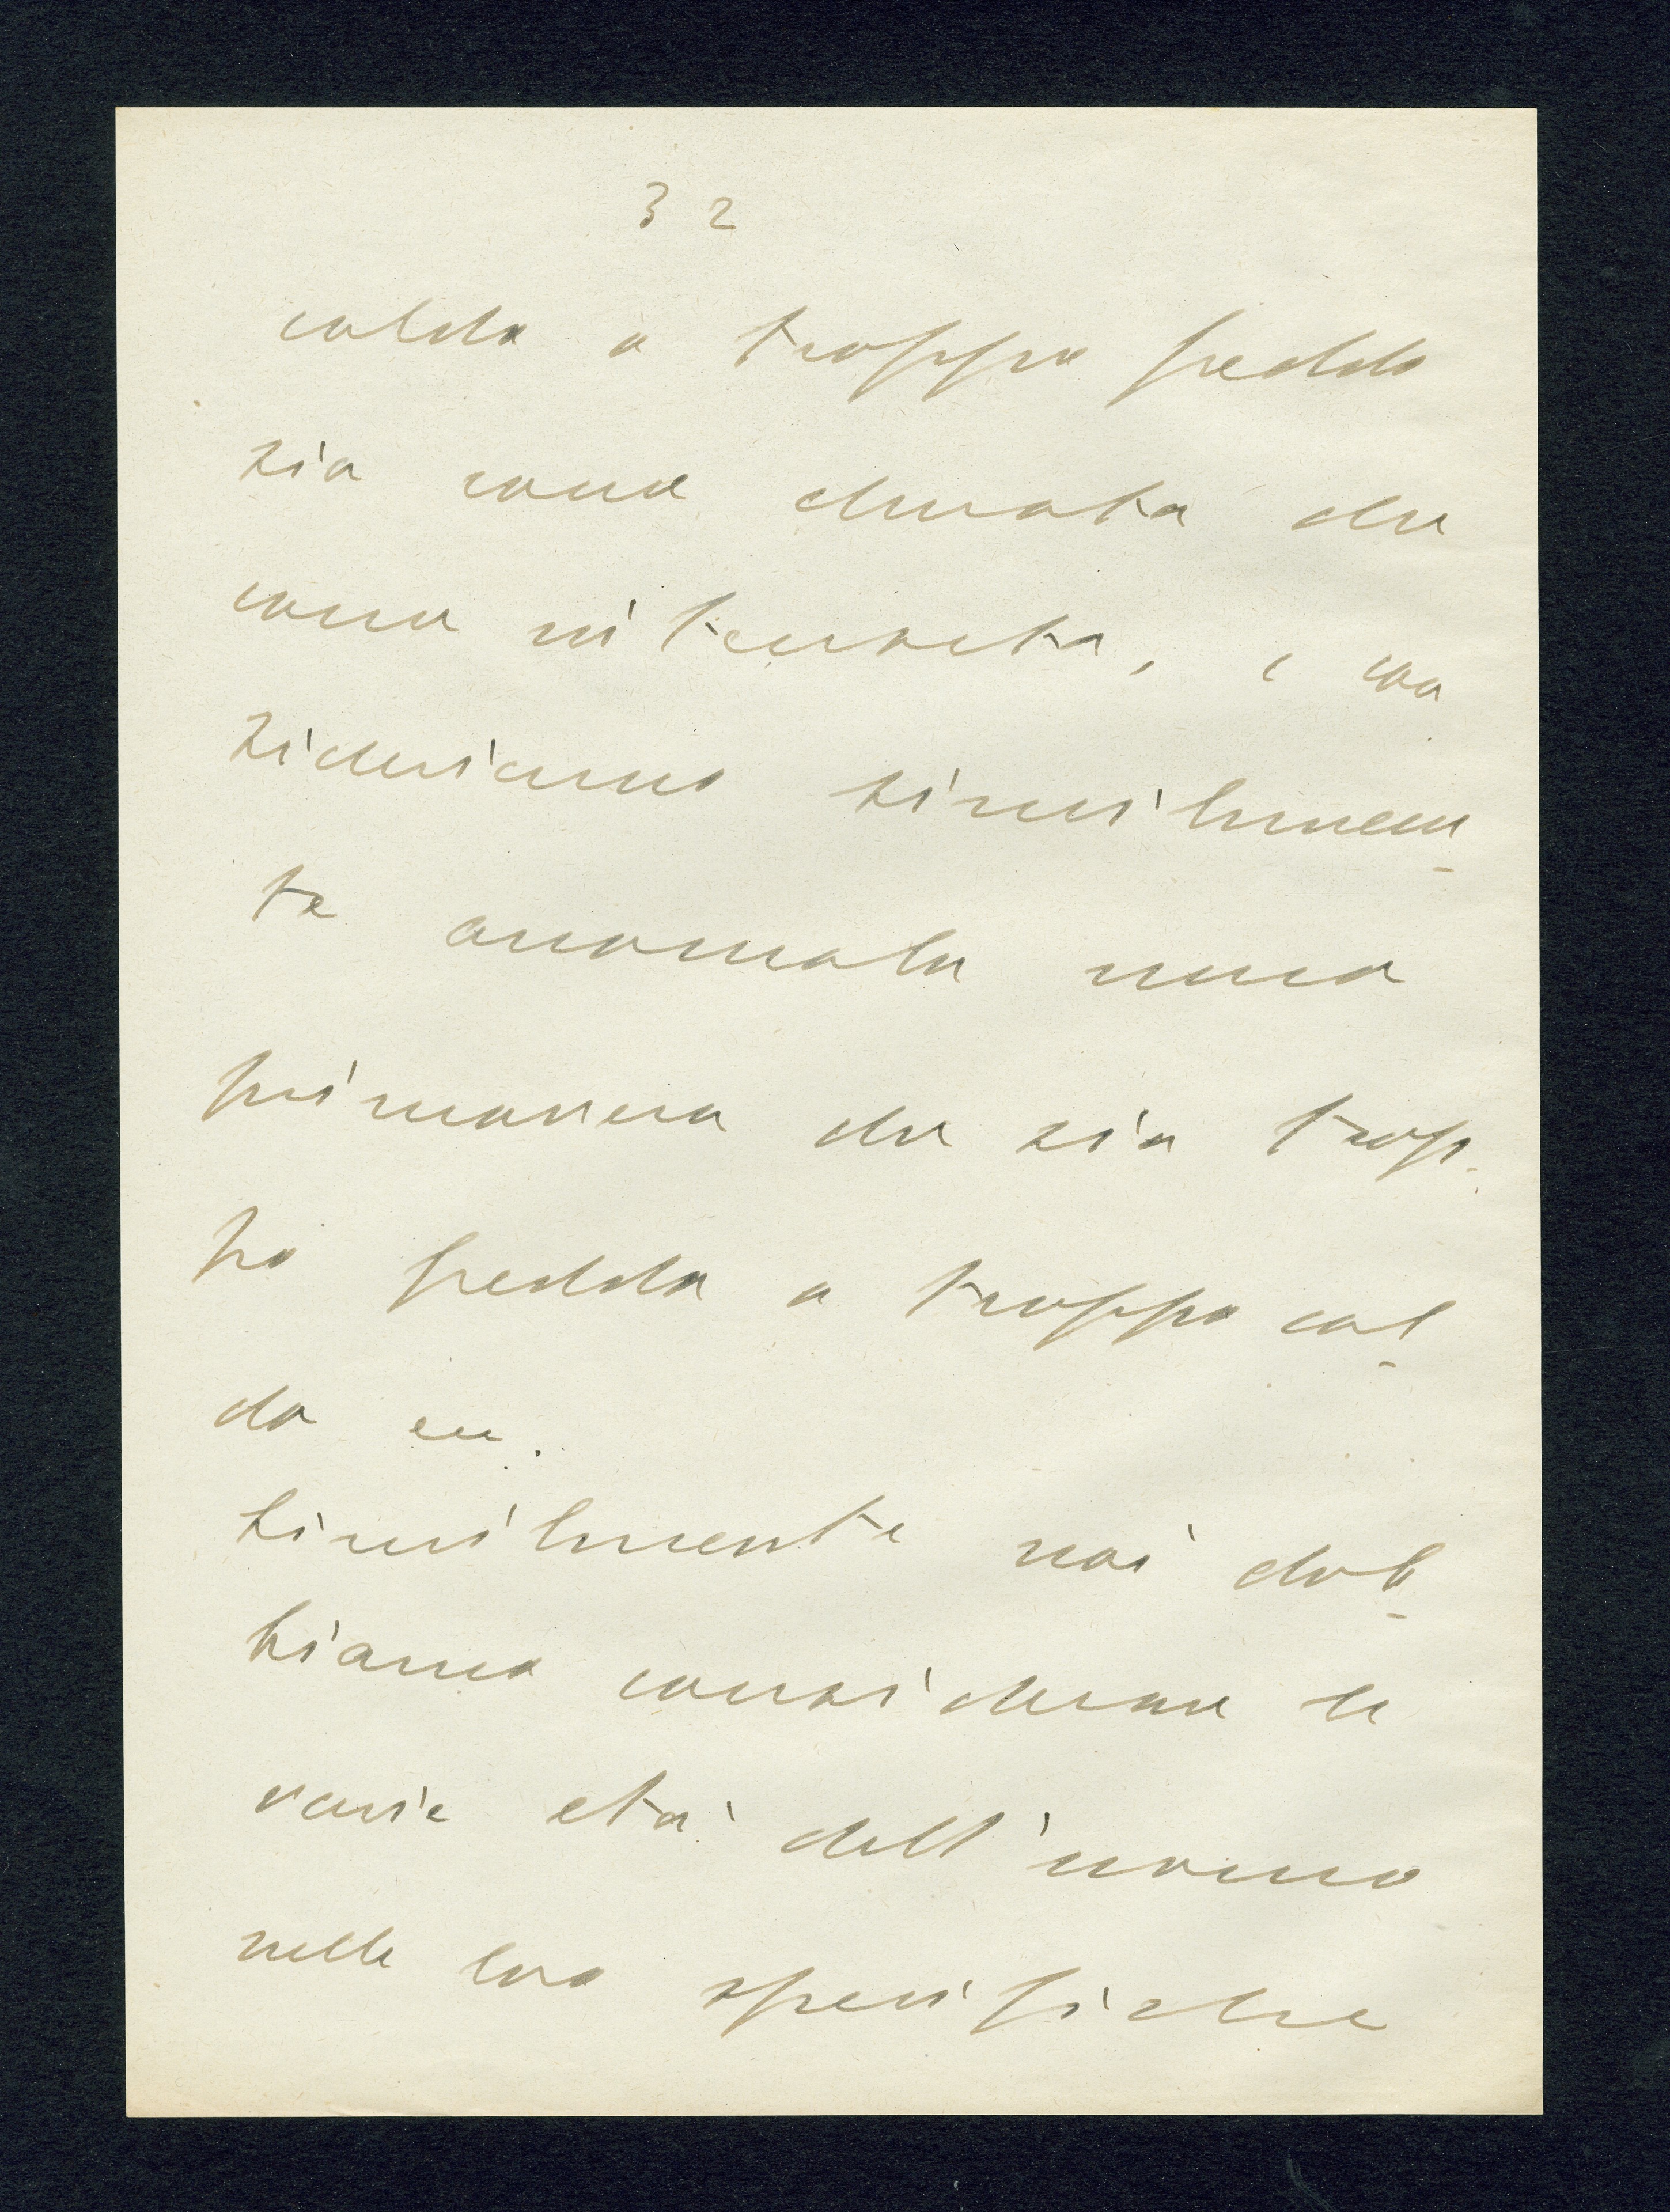 32
calda o troppo fredda
sia come durata che
come intensità, e con
sideriamo similmen-
te anomala una
primavera che sia trop-
po fredda o troppo cal-
da ecc.
Similmente noi dob-
biamo considerare le
varie età dell'uomo
nelle loro specifiche